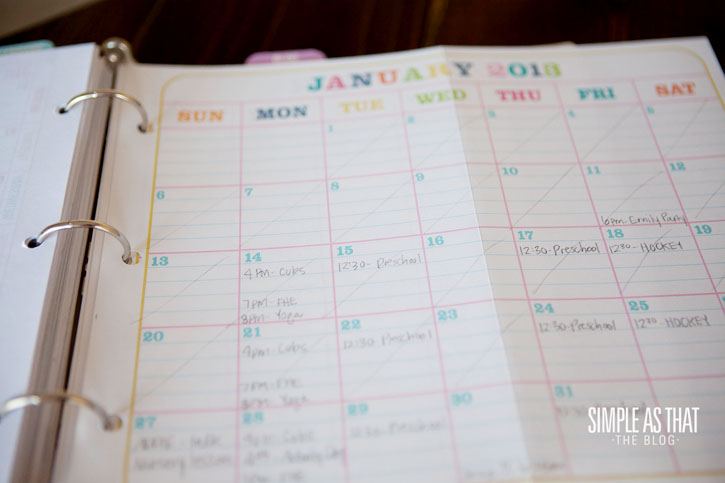 JANUARY 2013
SUN MON TUE WED THU FRI SAT
1 2 3 4 5
6 7 8 9 10 11 12
6pm-Emily Party
13 14 15 16 17 18 19
4PM-Cubs 12:30-Preschool 12:30-Preschool 12:30-HOCKEY
7PM-FHE
8PM-Yoga
20 21 22 23 24 25
4pm-Cubs 12:30-Preschool 12:30-Preschool 12:30-HOCKEY
7PM-FHE
8PM-Yoga
27 28 29 30 31
Cubs 12:30-Preschool 12:30-Preschool
Nursery lesson
SIMPLE AS THAT
·THE BLOG·